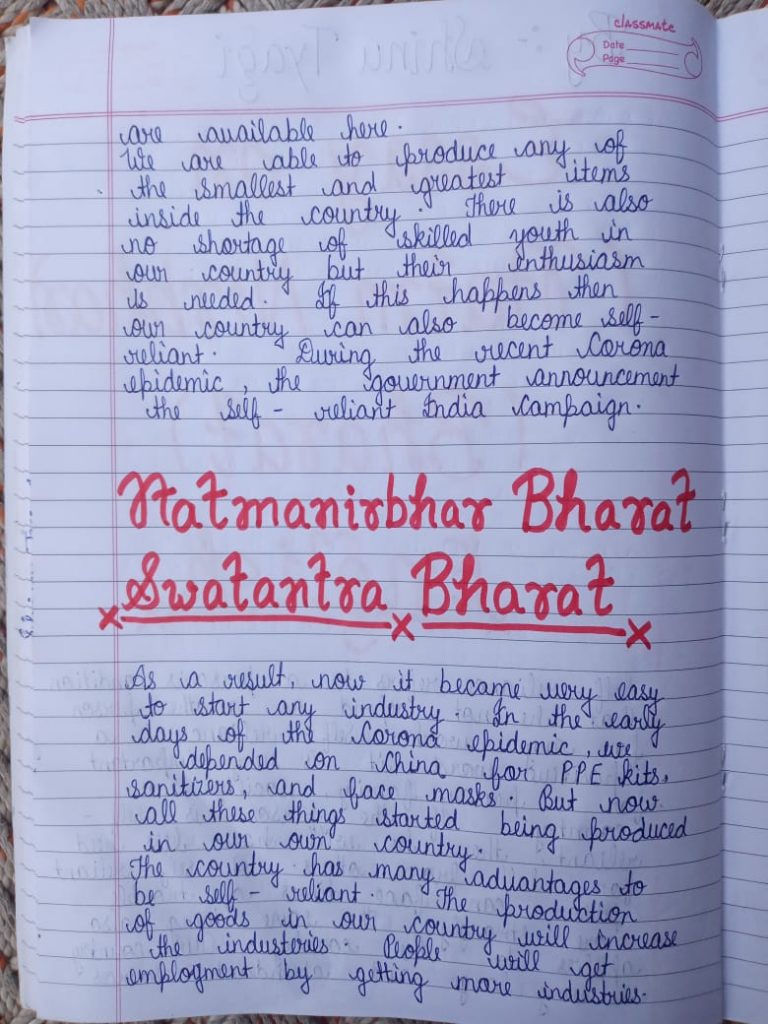 classmate
Date
Page
are available here.
We are able to produce any of
the smallest and greatest items
inside the country. There is also
no shortage of skilled youth in
our country but their enthusiasm
is needed. If this happens then
our country can also become self-
reliant. During the recent Corona
epidemic, the government announcement
the self- reliant India campaign.
Aatmanirbhar Bharat
Swatantra Bharat
As a result, now it became very easy
to start any industry. In the early
days of the Corona epidemic, we
depended on China for PPE kits,
sanitizers, and face masks. But now
all these things started being produced
in our own country.
The country has many advantages to
be self- reliant. The production
of goods in our country will increase
the industeries. People will get
employment by getting more industries.